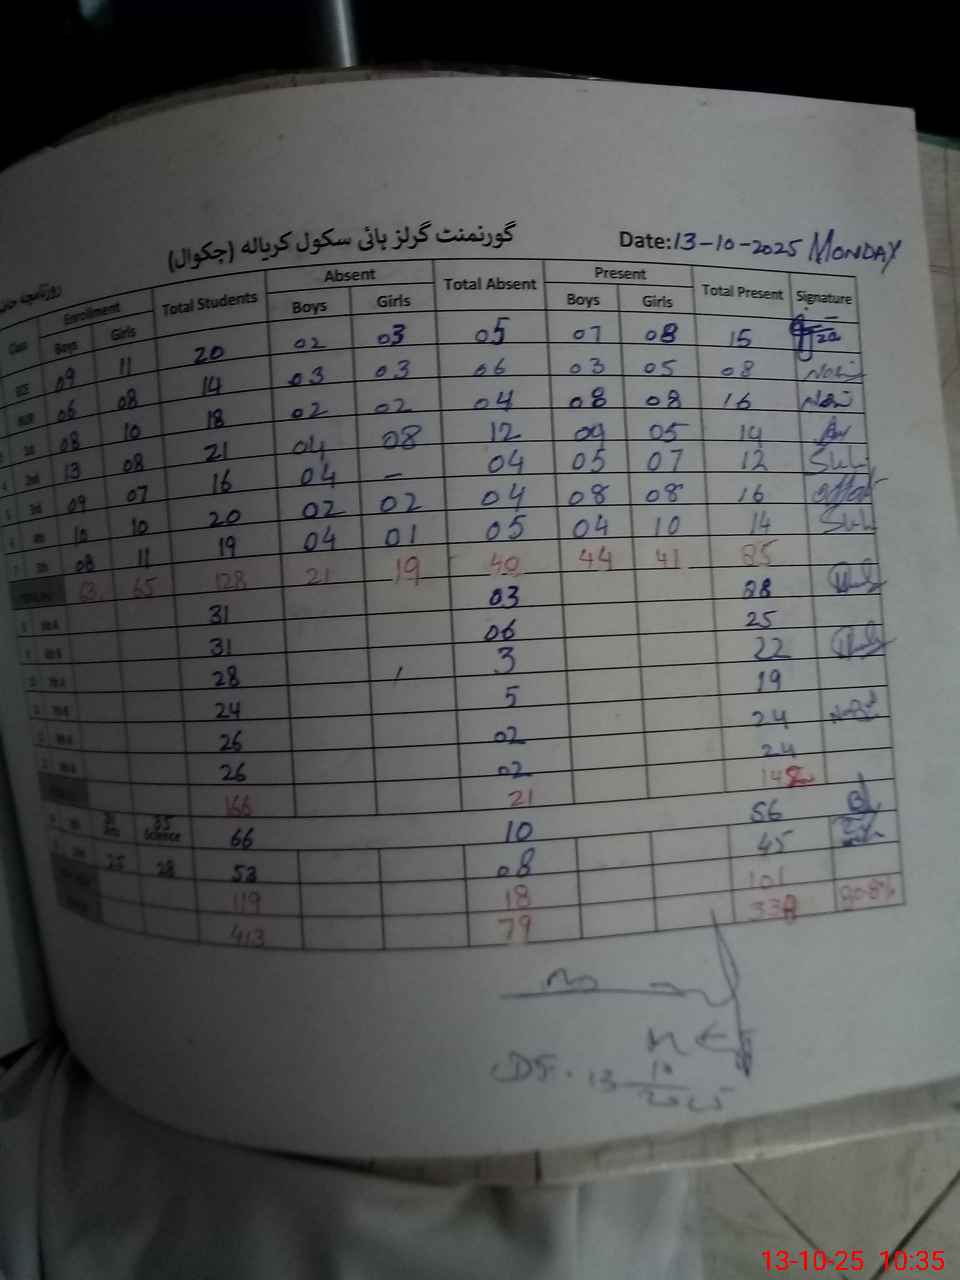 گورنمنٹ گرلز ہائی سکول کریالہ (چکوال)
Date: 13-10-2025 MONDAY
Class Enrollment Total Students Absent Total Absent Present Total Present Signature
Boys Girls Boys Girls Boys Girls
ECE 09 11 20 02 03 05 07 08 15
06 08 14 03 03 06 03 05 08
1st 08 10 18 02 02 04 08 08 16
2nd 13 08 21 04 08 12 09 05 14
3rd 09 07 16 04 – 04 05 07 12
4th 10 10 20 02 02 04 08 08 16
5th 08 11 19 04 01 05 04 10 14
63 65 128 21 19 40 44 41 85
31 03 28
31 06 25
28 3 22
24 5 19
26 02 24
26 02 24
166 21 14
Arts 35 Science 66 10 56
25 28 53 08 45
119 18 101
413 79 33 80.8%
13 10 2025
13-10-25 10:35